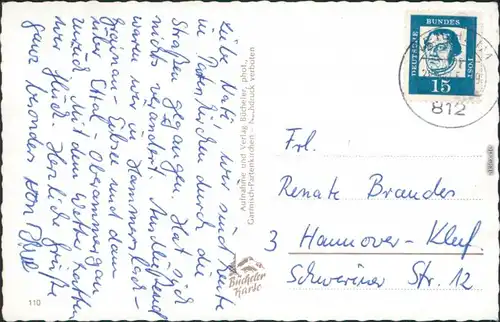 Liebe Nati! Wir sind heute
in Partenkirchen durch die
Straßen gegangen. Hat sich
nichts verändert. Anschließend
waren wir in Hammersbach-
Grainau-Eibsee und dann
über Ettal-Oberammergau
zurück. Mit dem Wetter hatten
wir Glück. Herzliche Grüße
ganz besonders von
110
Aufnahme und Verlag Bücheler, phot.,
Garmisch-Partenkirchen - Nachdruck verboten
Bücheler
Karte
DEUTSCHE
BUNDES
POST
15
812
Frl.
Renate Brandes
3 Hannover-Kleef
Schweriner Str. 12